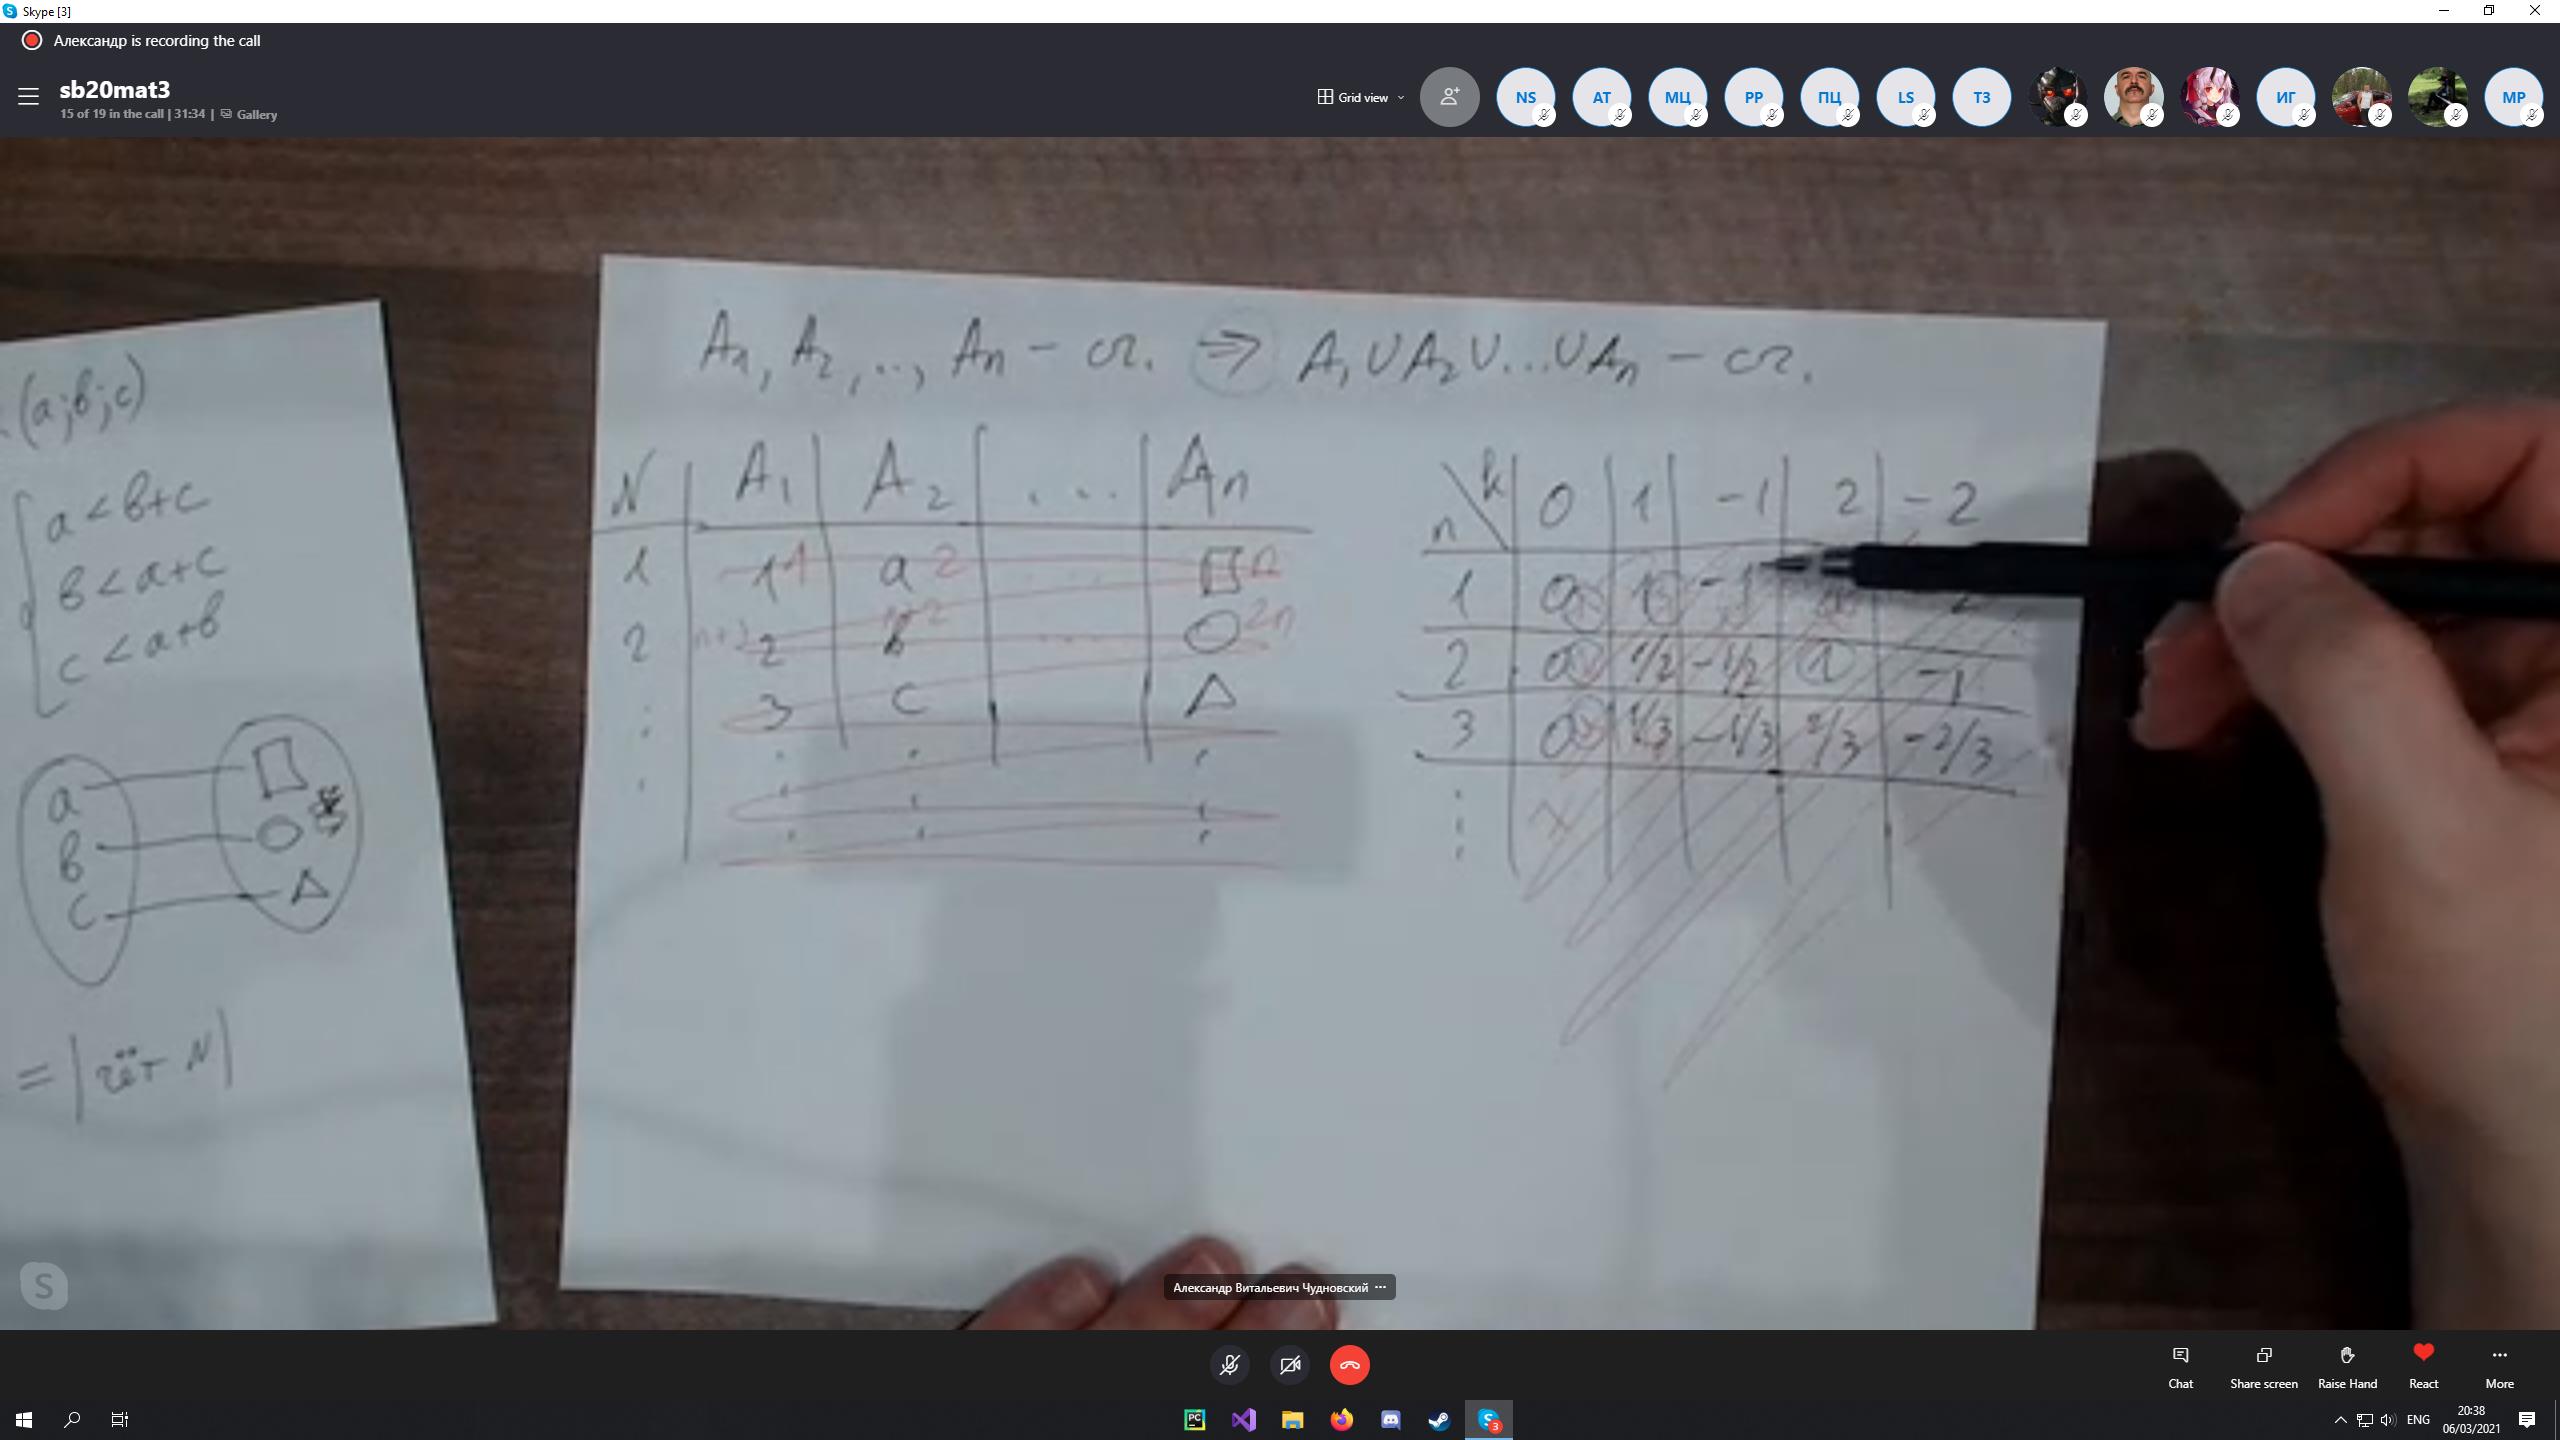 Skype [3]
Александр is recording the call
sb20mat3
15 of 19 in the call | 31:34 | Gallery
Grid view
NS AT МЦ PP ПЦ LS ТЗ ИГ MP
(a;b;c)
a < b+c
b < a+c
c < a+b
a
b
c
= | чёт N |
A₁, A₂, .., Aₙ – сч. ⇒ A₁ ∪ A₂ ∪ ... ∪ Aₙ – сч.
N A₁ A₂ ... Aₙ
1 1 1 a 2 □ n
2 n+1 2 n+2 b ... ○ 2n
3 c △
n \ k 0 1 -1 2 -2
1 0 1 -1
2 0 1/2 -1/2 1 -1
3 0 1/3 -1/3 2/3 -2/3
Александр Витальевич Чудновский ...
Chat
Share screen
Raise Hand
React
More
ENG
20:38
06/03/2021